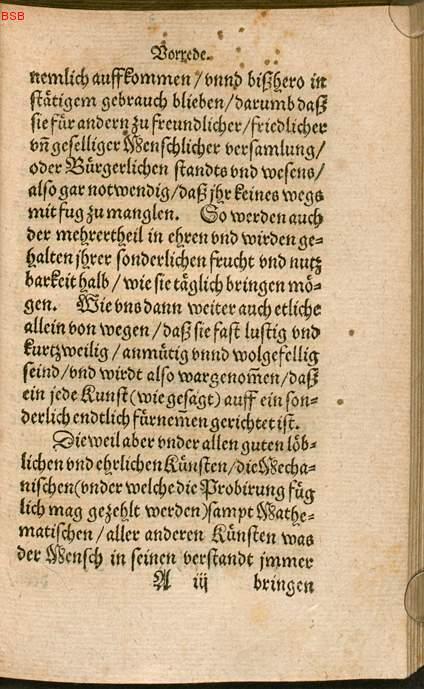 BSB
Vorrede.
nemlich auffkommen / vnnd bißhero in
stätigem gebrauch blieben / darumb daß
sie für andern zu freundlicher / friedlicher
vñ geselliger Menschlicher versamlung /
oder Bürgerlichen standts vnd wesens /
also gar notwendig / daß jhr keines wegs
mit fug zu manglen. So werden auch
der mehrertheil in ehren vnd wirden ge-
halten jhrer sonderlichen frucht vnd nutz
barkeit halb / wie sie täglich bringen mö-
gen. Wie vns dann weiter auch etliche
allein von wegen / daß sie fast lustig vnd
kurtzweilig / anmütig vnnd wolgefellig
seind / vnd wirdt also wargenom̃en / daß
ein jede Kunst (wie gesagt) auff ein son-
derlich endtlich fürnem̃en gerichtet ist.
Dieweil aber vnder allen guten löb-
lichen vnd ehrlichen Künsten / die Mecha-
nischen (vnder welche die Probirung füg
lich mag gezehlt werden) sampt Mathe-
matischen / aller anderen Künsten was
der Mensch in seinen verstandt jmmer
A iij bringen